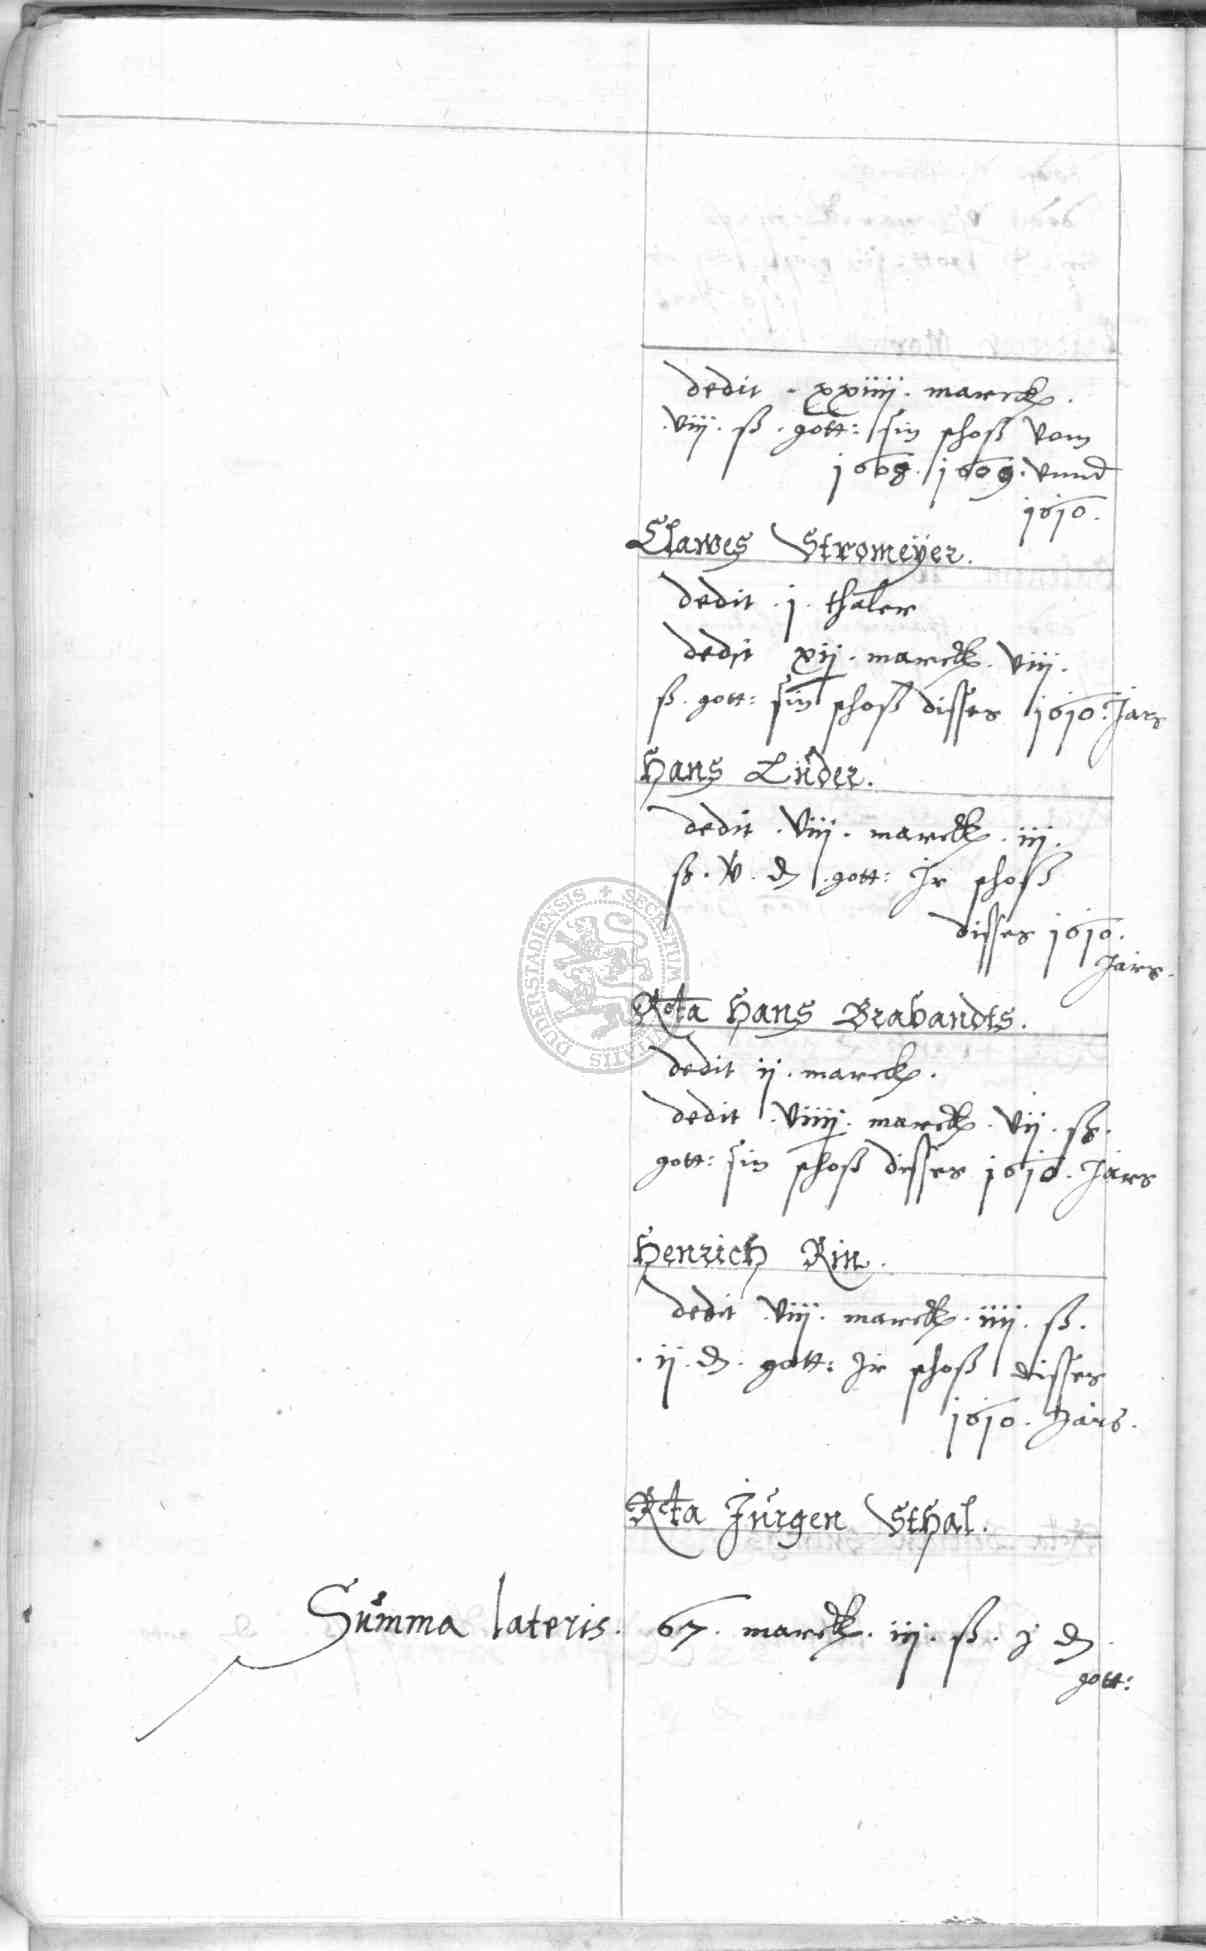 dedit . xxiiii . marck .
. viii . ß . gott: sin schoß vom
1608 . 1609 . vnnd
1610 .
Clawes Stromeÿer .
dedit . j . thaler
dedit xij . marck . viii .
ß . gott: sin schoß disses 1610 . Jars
Hans Lüder .
dedit . viii . marck . iii .
ß . v . ₰ . gott: Jr schoß
disses 1610 .
Jars .
Rcta Hans Brabandts .
dedit ij . marck .
dedit . viiij . marck . vij . ß .
gott: sin schoß disses 1610 . Jars
Henrich Rin .
dedit viii . marck . iiij . ß .
. ij . ₰ . gott: Jr schoß disses
1610 . Jars .
Rcta Jürgen Sthal .
Summa lateris . 67 . marck . iij . ß . j ₰ .
gott:
SECRETUM
DUDERSTADIENSIS